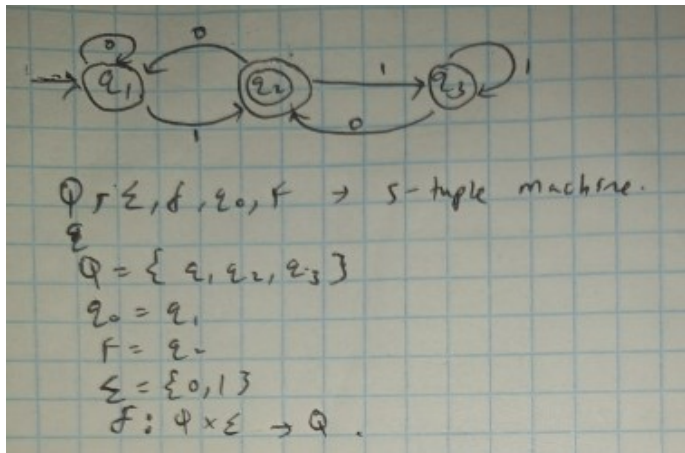 0 0
q1 q2 1 q3 1
1 0
Q, Σ, δ, q0, F → 5-tuple machine.
q
Q = { q1, q2, q3 }
q0 = q1
F = q2
Σ = {0,1}
δ: Q × Σ → Q.